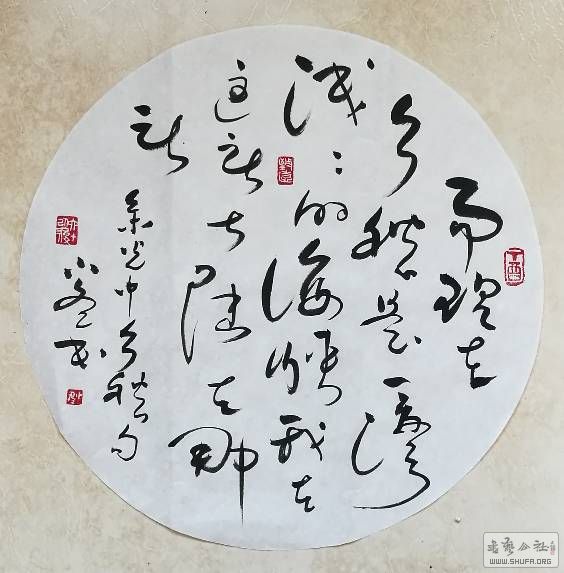 而现在
乡愁是一湾
浅浅的海峡我在
这头大陆在那
头
余光中乡愁句
书
书艺公社
WWW.SHUFA.ORG